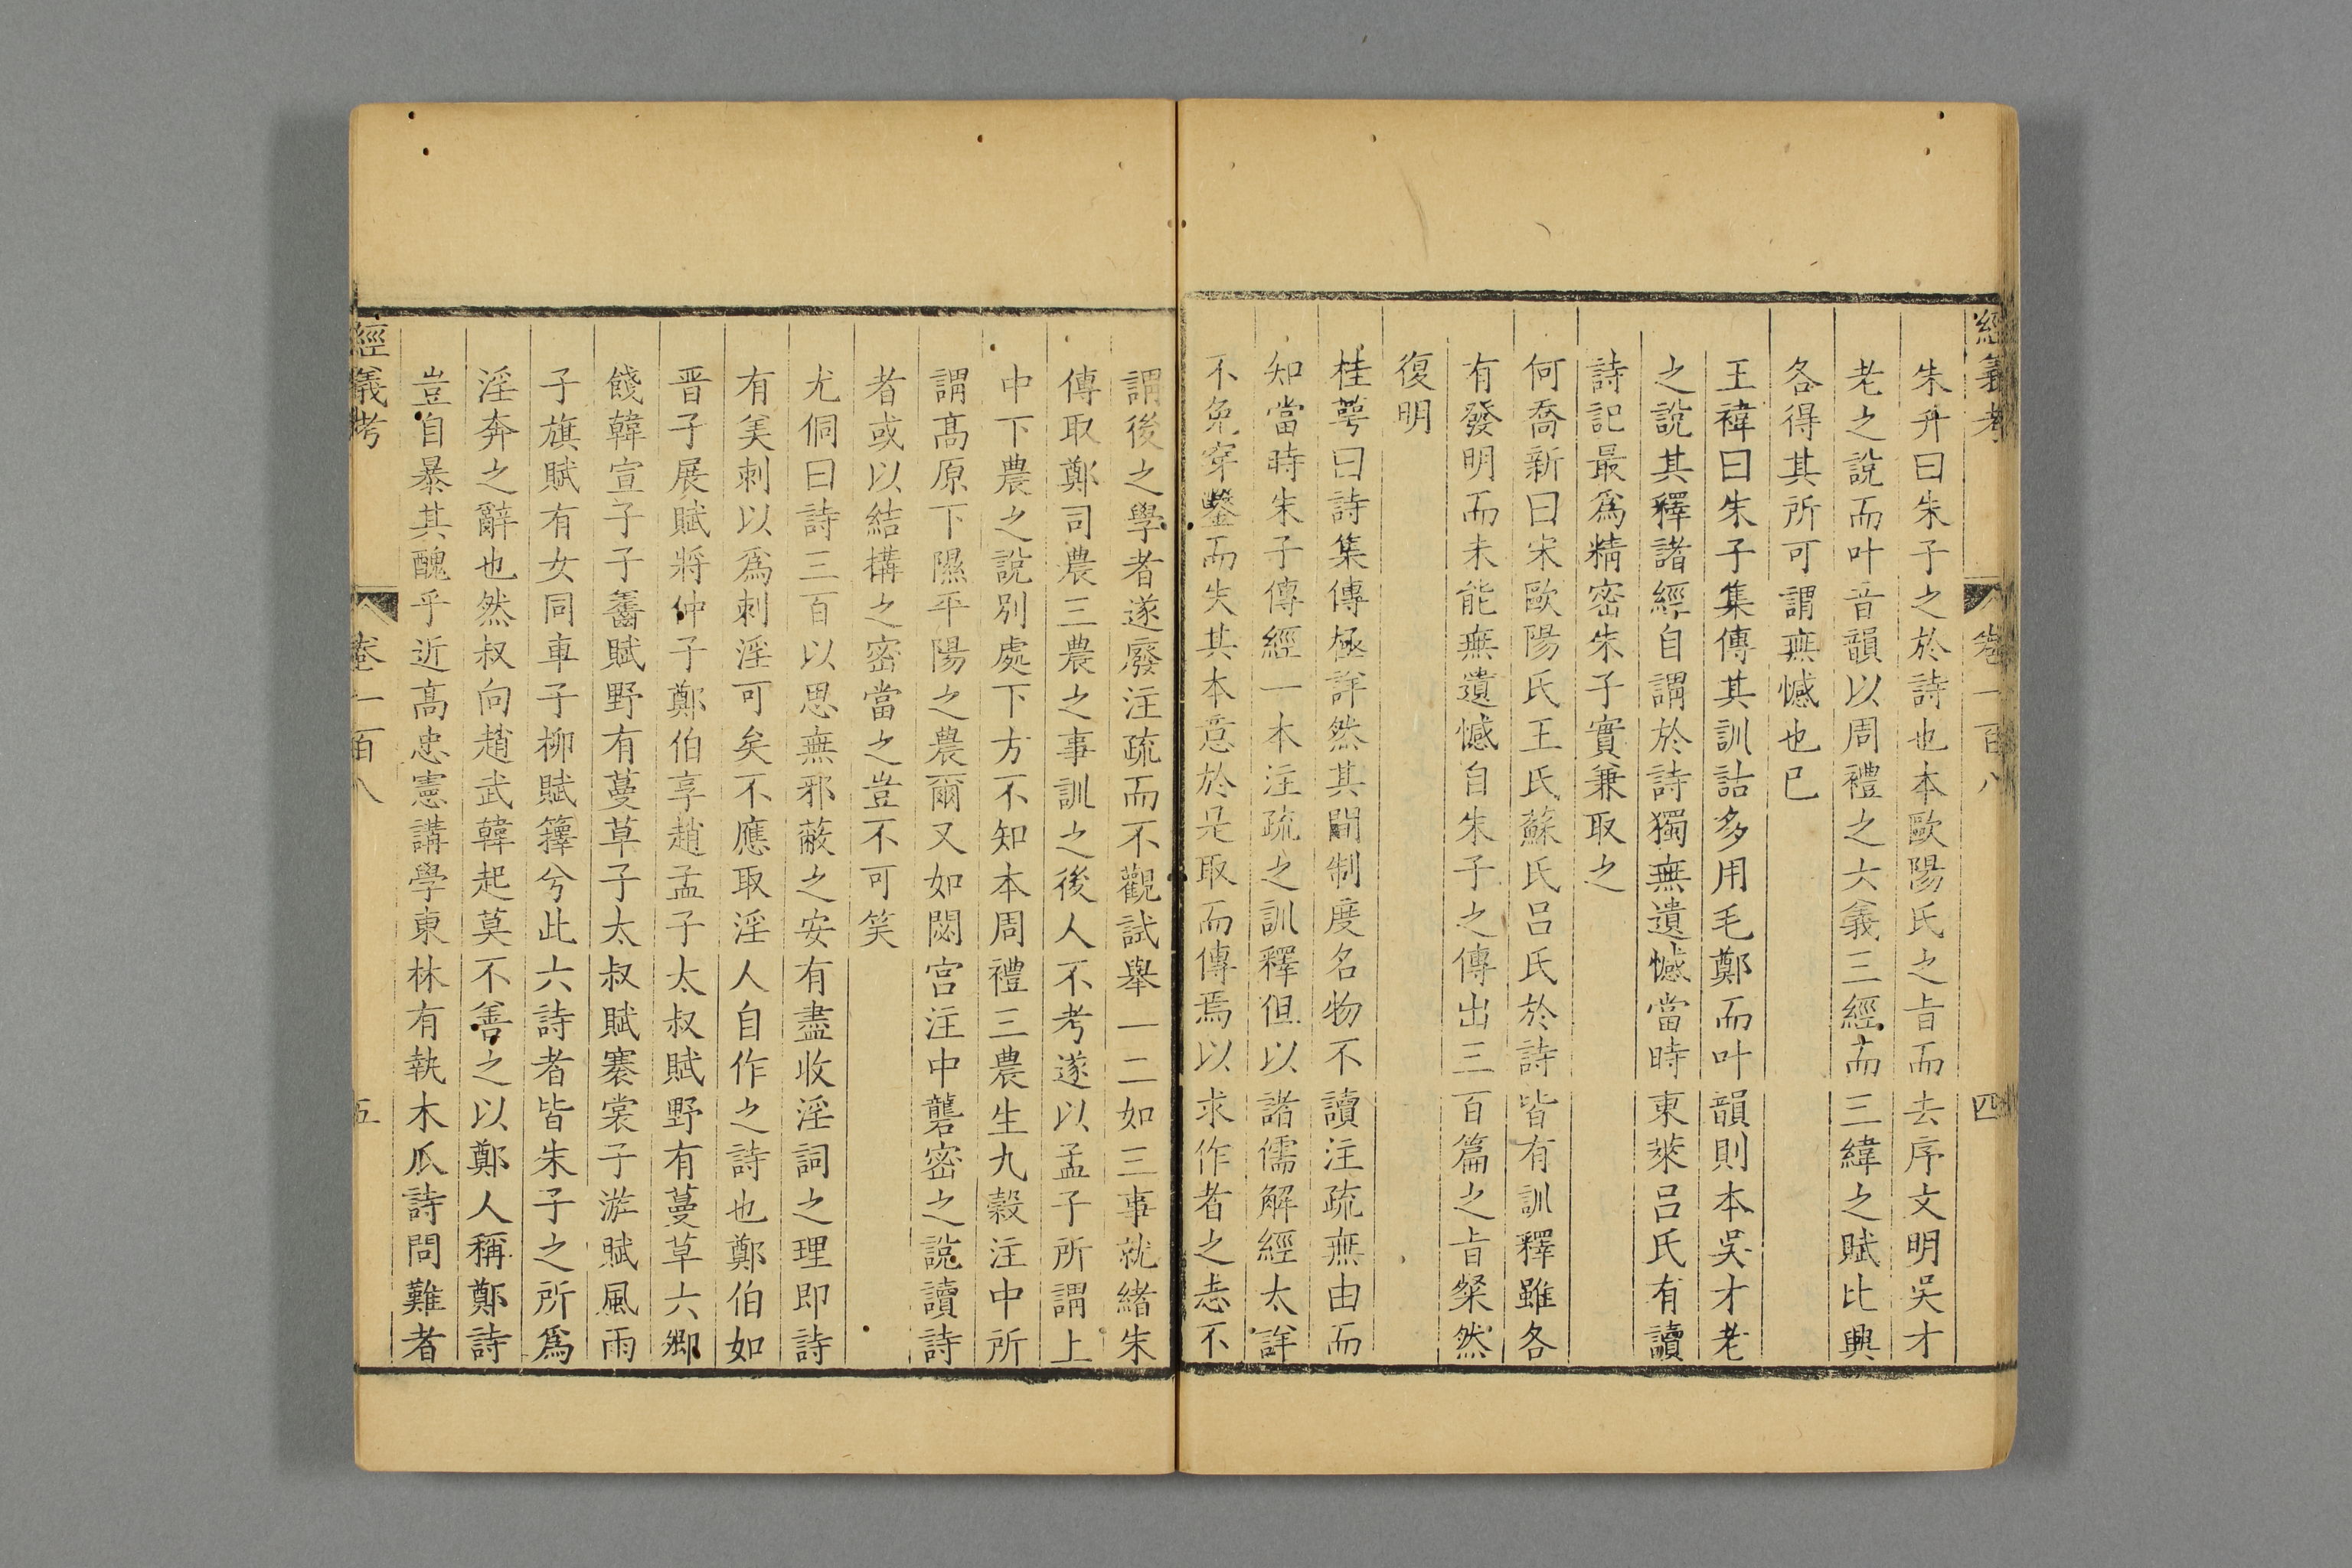 經義考 卷一百八 四
朱升曰朱子之於詩也本歐陽氏之旨而去序文明吳才
老之說而叶音韻以周禮之六義三經而三緯之賦比興
各得其所可謂無憾也已
王禕曰朱子集傳其訓詁多用毛鄭而叶韻則本吳才老
之說其釋諸經自謂於詩獨無遺憾當時東萊呂氏有讀
詩記最爲精密朱子實兼取之
何喬新曰宋歐陽氏王氏蘇氏呂氏於詩皆有訓釋雖各
有發明而未能無遺憾自朱子之傳出三百篇之旨粲然
復明
桂萼曰詩集傳極詳然其間制度名物不讀注疏無由而
知當時朱子傳經一本注疏之訓釋但以諸儒解經太詳
不免穿鑿而失其本意於是取而傳焉以求作者之志不
謂後之學者遂廢注疏而不觀試舉一二如三事就緒朱
傳取鄭司農三農之事訓之後人不考遂以孟子所謂上
中下農之說別處下方不知本周禮三農生九穀注中所
謂高原下隰平陽之農爾又如閟宮注中礱密之說讀詩
者或以結構之密當之豈不可笑
尤侗曰詩三百以思無邪蔽之安有盡收淫詞之理即詩
有美刺以爲刺淫可矣不應取淫人自作之詩也鄭伯如
晉子展賦將仲子鄭伯享趙孟子太叔賦野有蔓草六卿
餞韓宣子子齹賦野有蔓草子太叔賦褰裳子游賦風雨
子旗賦有女同車子柳賦籜兮此六詩者皆朱子之所爲
淫奔之辭也然叔向趙武韓起莫不善之以鄭人稱鄭詩
豈自暴其醜乎近高忠憲講學東林有執木瓜詩問難者
經義考 卷一百八 五